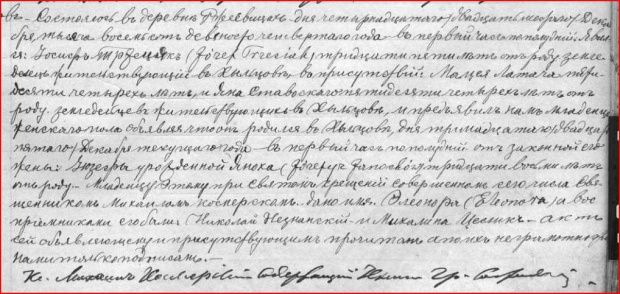 Состоялось въ деревнѣ дня четырнадцатаго /двадцать шестого/ Дека
бря тысяча восемьсотъ девяносто четвертаго года въ первый часъ пополудни. Яви
лся Іосифъ (Józef Trzeciak) тридцати пяти лѣтъ отъ роду земле
дѣлецъ жительствующій въ Хыльцовѣ, въ присутствіи Мацея Латача трид
цати четырехъ лѣтъ, и Яна Ставскаго пятидесяти четырехъ лѣтъ отъ
роду земледѣльцевъ жительствующихъ въ Хыльцовѣ, и предъявилъ намъ младенца
женскаго пола объявляя что онъ родился въ Хыльцовѣ, дня тринадцатаго /двадцать
пятаго/ Декабря текущаго года въ первый часъ пополудни отъ законной его
жены Юзефы урожденной Яноха (Józefy тридцати восьми лѣтъ
отъ роду. Младенцу этому при Святомъ крещеніи совершенномъ сего числа Свя
щенникомъ Михаиломъ дано имя Элеонора (Eleonora) а вос
пріемниками его были Николай и Михалина Цесликъ. Актъ
сей объявляющему и присутствующимъ прочитанъ а по ихъ неграмотности
нами только подписанъ.
Кс. Михаилъ